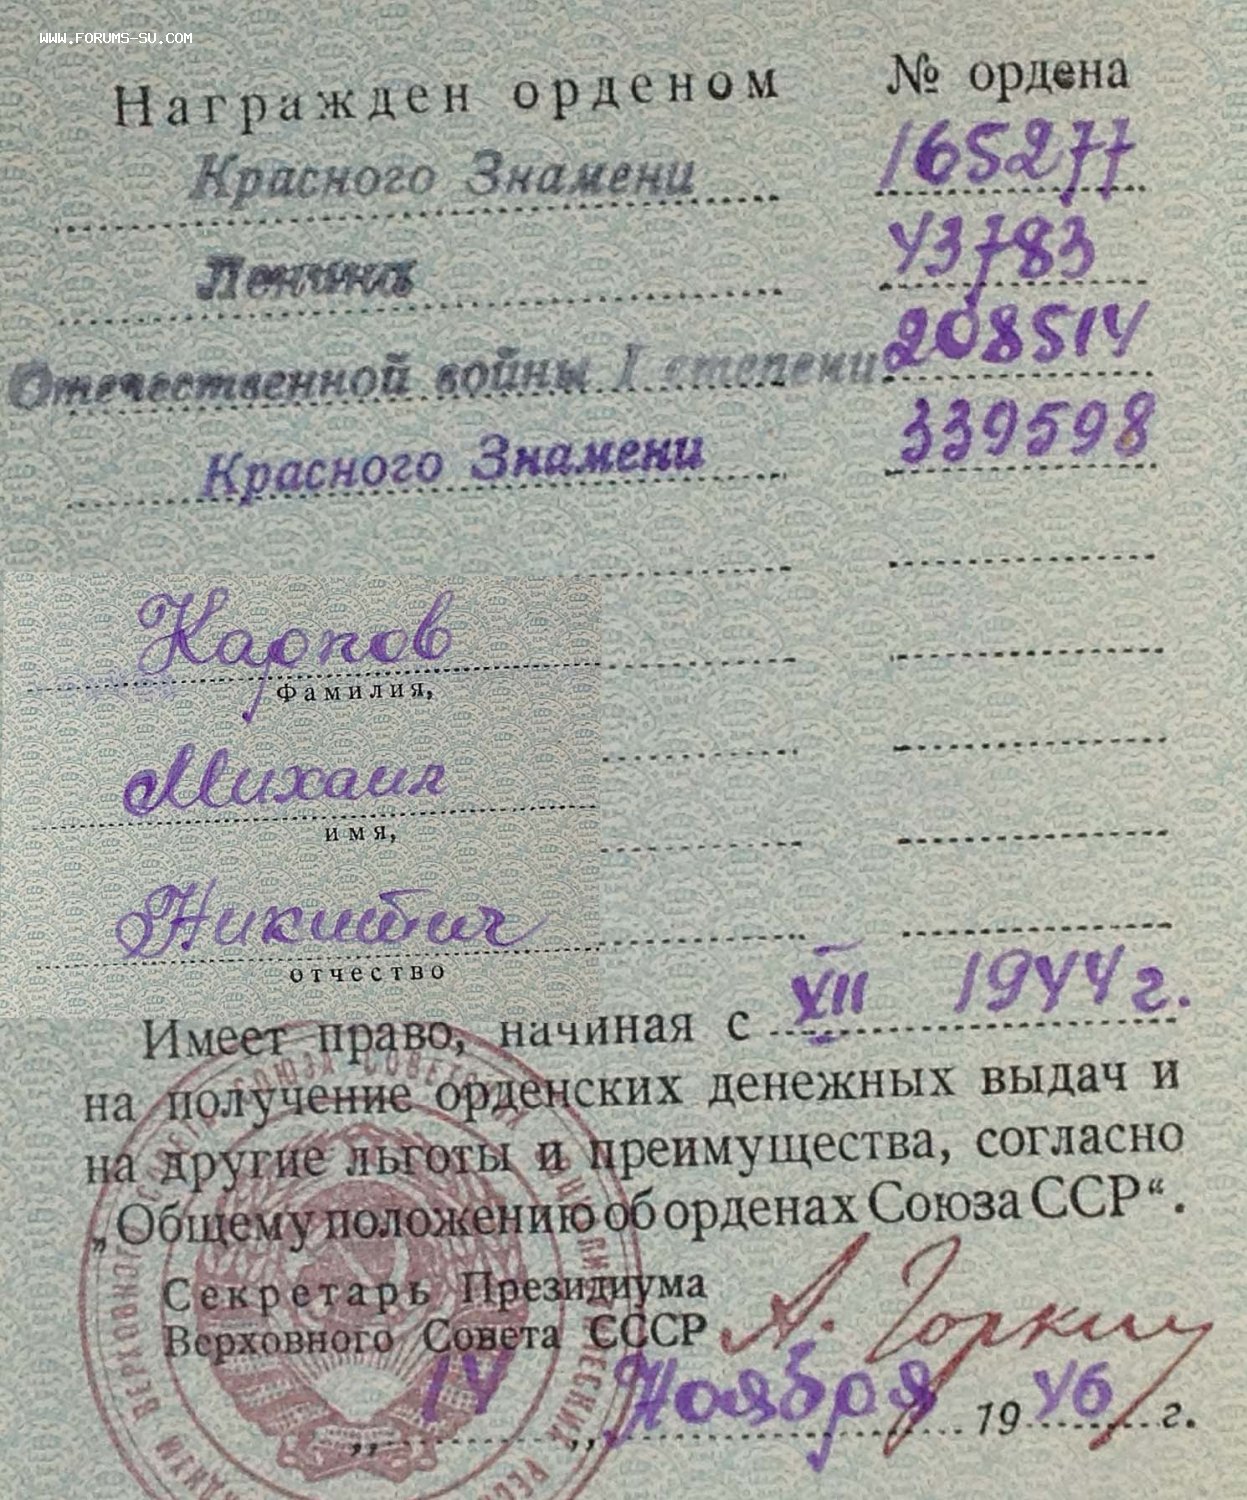 WWW.FORUMS-SU.COM
Награжден орденом № ордена
Красного Знамени 165277
Ленина 43783
Отечественной войны I степени 208514
Красного Знамени 339598
Карпов
фамилия,
Михаил
имя,
Никитич
отчество
Имеет право, начиная с XII 1944 г.
на получение орденских денежных выдач и
на другие льготы и преимущества, согласно
„Общему положению об орденах Союза ССР“.
Секретарь Президиума
Верховного Совета СССР А. Горкин
„14„ Ноября 1946 г.